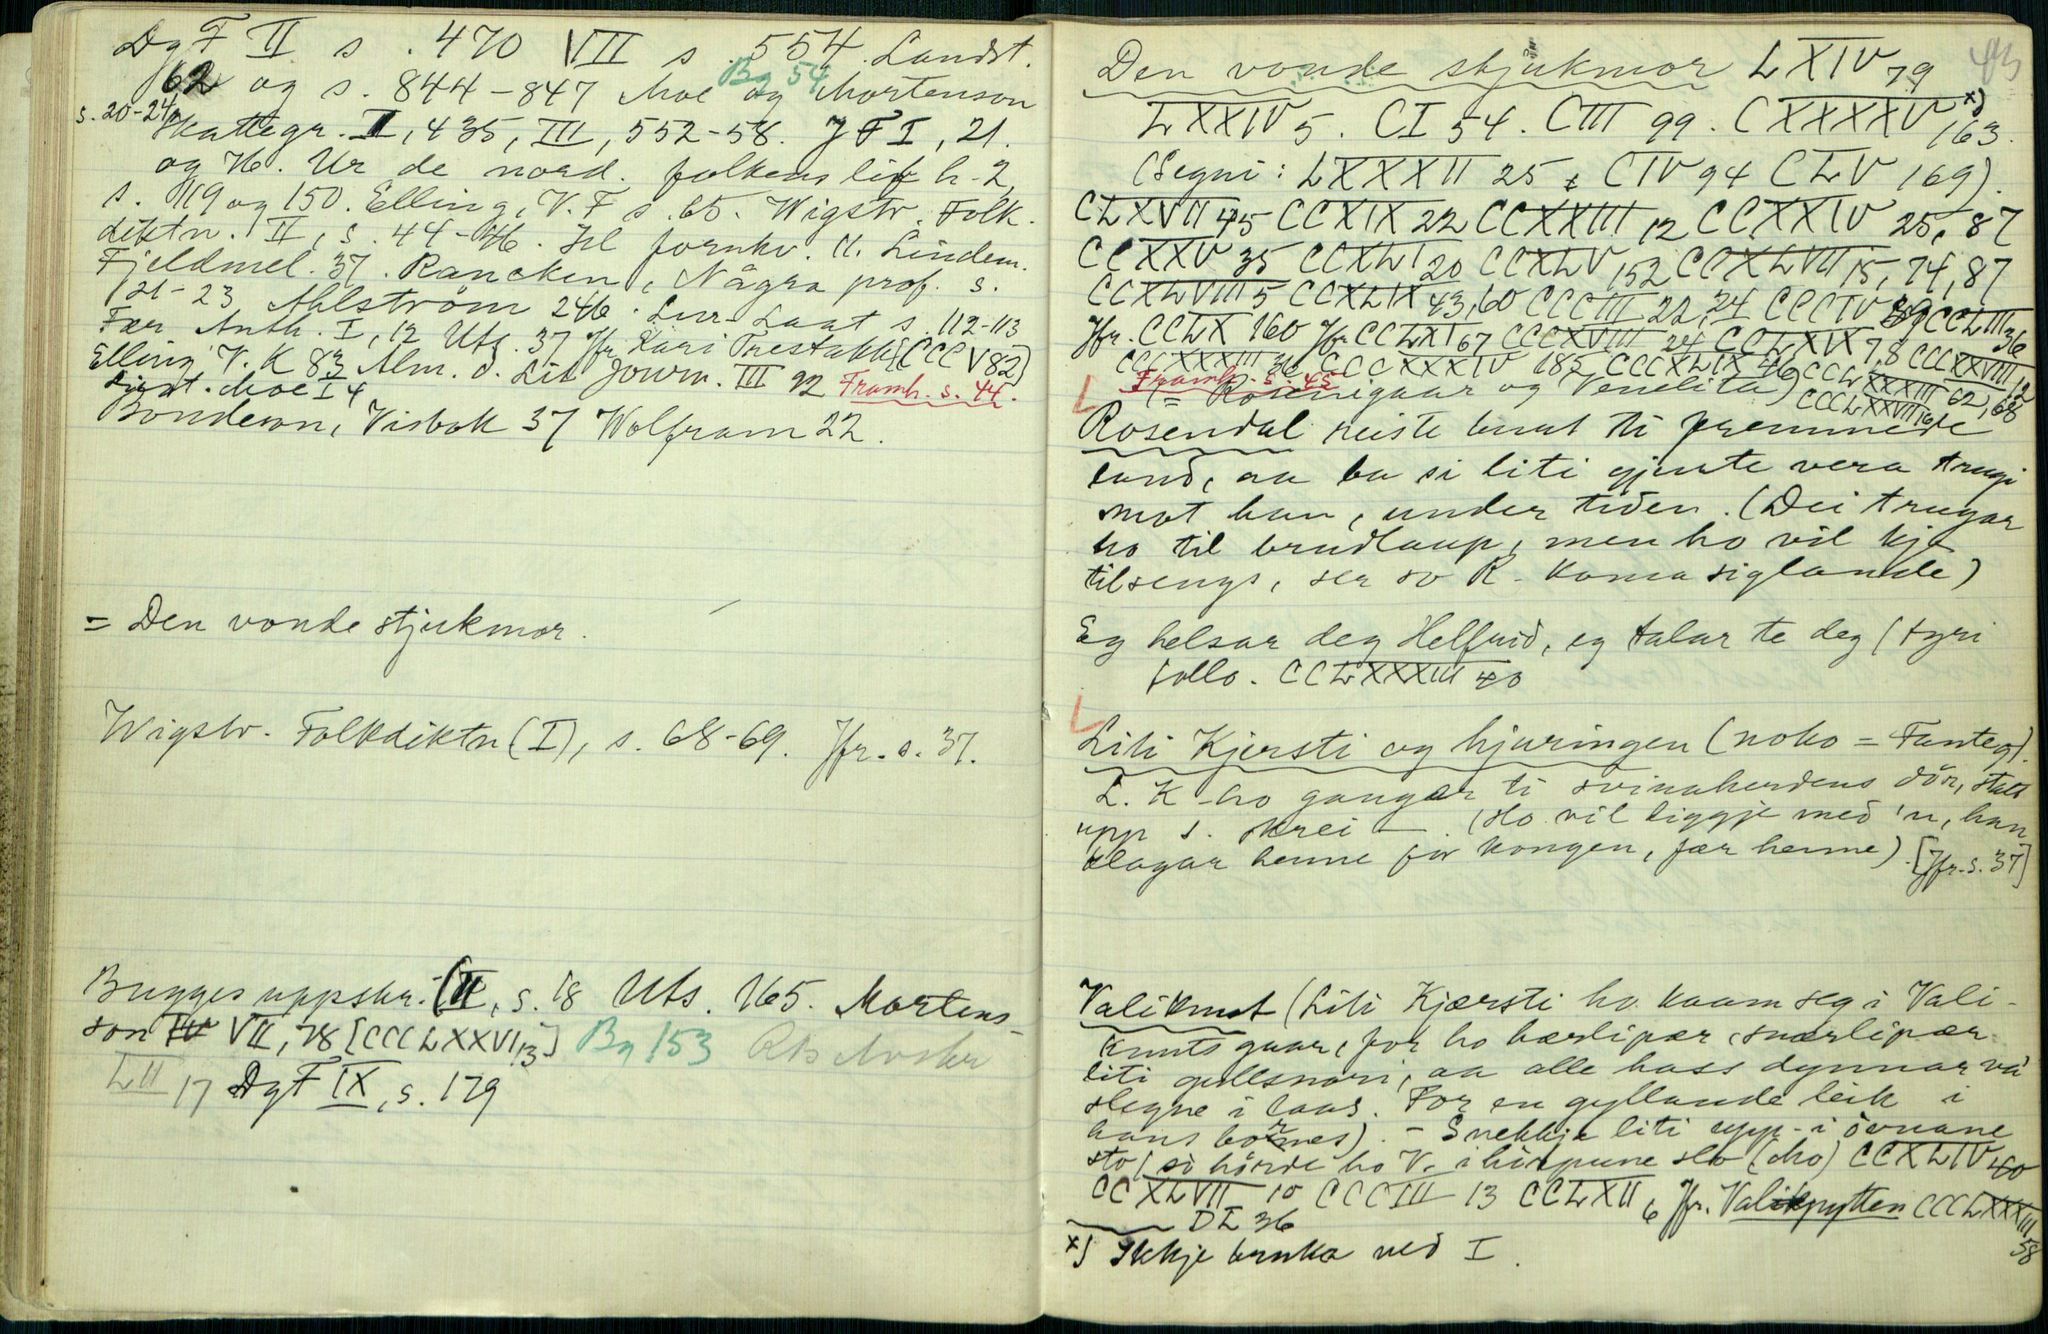 DgF II s. 470 VII s 554. Landst.
62 og s. 844-847 Moe og Mortenson
Bg 54
s. 20-24
Skattegr. II, 435, III, 552-58. JFI, 21.
og 76. Ur de nord. folkens lif h-2
s. 119 og 150. Elling, V.F s. 65. Wigstr. Folk.
diktn. II, s. 44-46. Isl fornkv. 11. Lindem.
Fjeldmel. 37. Rancken, Några prof. s.
21-23 Ahlström 246. Lur-Laat s. 112-113
Fær Anth. I, 12 Uts. 37 Jfr. Kari Trestakk [CCCV82]
Elling V.K 83 Alm. d. Lit Journ. III 92 Framh. s. 44.
Moe I 4
Bondeson, Visbok 37 Wolfram 22.
= Den vonde stjukmor.
Wigstr. Folkdiktn (I), s. 68-69. Jfr. s. 37.
Bugges uppskr. (II, s. 18 Uts. 165. Mortens-
son VII, 78 [CCCLXXVI 13] Bg 153
LII 17 DgF IX, s. 179
43
Den vonde stjukmor LXIV 79
LXXIV 5. CI 54. CIII 99. CXXXXV x) 163.
(Segni: LXXXII 25 CIV 94 CLV 169).
CLXVII 45 CCXIX 22 CCXXIII 12 CCXXIV 25, 87
CCXXV 35 CCXLI 20 CCXLV 152 CCXLVII 15, 74, 87
CCXLVIII 5 CCXLIX 43, 60 CCCIII 22, 24 CCCIV CCLIII 36
Jfr. CCLX 160 Jfr CCLXI 67 CCCXVIII 24 CCLXIX 7,8 CCCXXVIII 12
CCCXXXIV 185 CCCXLIX 46 CCLXXXIII 62, 68
Framh. s. 45
(= Rosensgaar og Venelita) CCCLXXVII 16
Rosendal reiste burt ti fremmede
land, aa ba si liti gjente vera trugi
mot han, under tiden. (Dei trugar
ho til brudlaup, men ho vil kje
tilsengs, ser so R. koma siglande)
Eg helsar deg Helfrid, eg talar te deg (fyri
follo. CCLXXXIII 40
Liti Kjersti og hjuringen (noko = Fanteg).
L. K ho gangar ti svinaherdens dör, statt
upp s. skrei —. (Ho vil liggje med 'n, han
klagar henne for kongen, fær henne). [Jfr. s. 37]
Valiknut (Liti Kjærsti ho kaam seg i Vali-
knuts gaar, for ho bærlipær, snærlipær
liti gullsnori, aa alle hass dynnar va
slegne i laas. For en gyllande leik i
hans bornes). - Snekkja liti upp-i övrane
sto / so hörde ho V. i hörpune slo (dho) CCXLIV 40
CCXLVII 10 CCCIII 13 CCLXII 6 Jfr. Valiknytten CCCLXXXIII 58
DI 36
x) Ikkje bruka ved I.